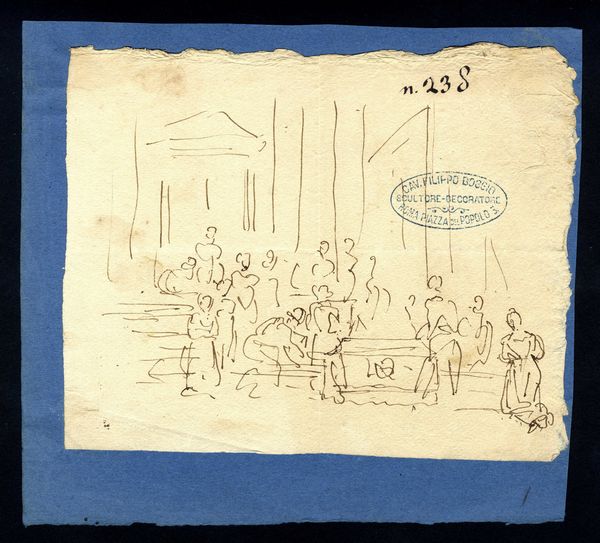 n. 238
CAV. FILIPPO BOGGIO
SCULTORE-DECORATORE
ROMA PIAZZA DEL POPOLO 3